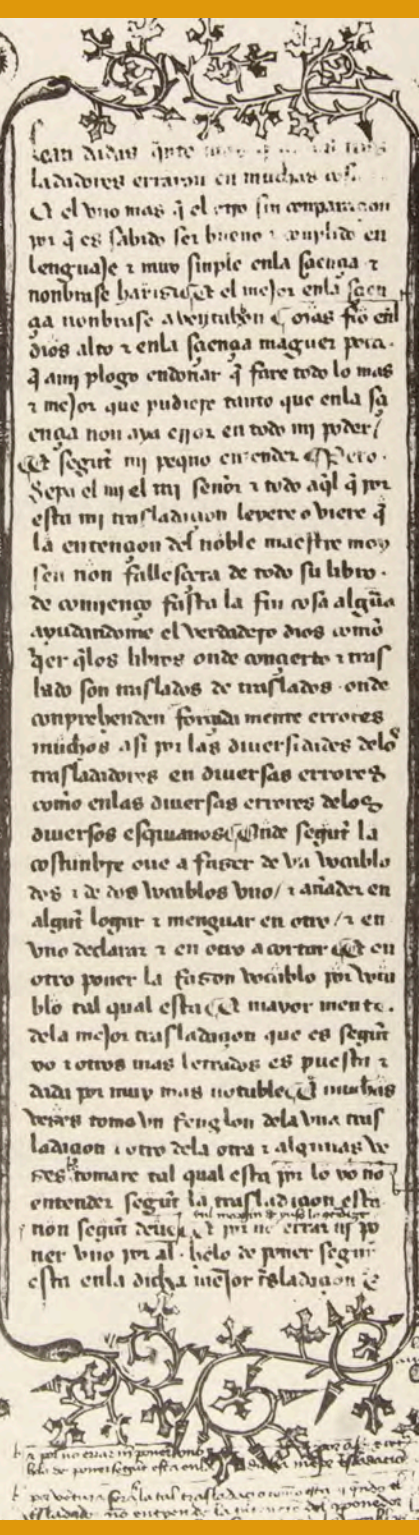 sean dadas
ladadores erraron en muchas
Et el vno mas q̃ el otro sin conparaçion
por q̃ es sabido ser bueno ⁊ conplido en
lenguaje ⁊ muy sinple enla sçiença ⁊
nonbrase harisi Et el mejor enla sçien
ça nonbrase abentabõn fio enl
dios alto ⁊ enla sçiença maguer poca.
q̃ ami plogo endoñar q̃ fare todo lo mas
⁊ mejor que pudiere tanto que enla sçi
ença non aya error en todo mi poder /
Et segũt mi peq̃no entender Pero.
sepa el mi señor ⁊ todo aq̃l q̃ por
esta mi trasladaçion leyere o oviere q̃
la entençion del noble maestre moy
sen non fallesçera de todo su libro.
de comienço fasta la fin cosa algũa
ayudandome el verdadero dios como
q̃er q̃los libros onde conçierto ⁊ tras
lado son traslados de traslados. onde
conprehenden forçada mente errores
muchos asi por las diuersidades delos
trasladadores en diuersas errores
como enlas diuersas errores delos
diuersos escriuanos Onde segũt la
costunbre oue a faser de vn vocablo
dos ⁊ de dos vocablos vno / ⁊ añader en
algũt logar ⁊ menguar en otro / ⁊ en
vno declarar ⁊ en otro acortar Et en
otro poner la rason vocablo por voca
blo tal qual esta Et mayor mente.
dela mejor trasladaçion que es segũt
yo ⁊ otros mas letrados es puesta ⁊
dada por muy mas notable Et muchas
veses tome vn renglon dela vna tras
ladaçion ⁊ otro dela otra ⁊ algunas ve
ses tomare tal qual esta por lo yo no
entender segũt la trasladaçion esta
non segũt deuia Et por no errar ni po
ner vno por al. helo de poner segũt
esta enla dicha mejor trãsladaçion
⁊ por no errar ni poner vno
helo de poner segũt esta enla dicha mejor trasladaçio
por ventura sera la tal trasladaçio
trasladado no entyende la entençio del